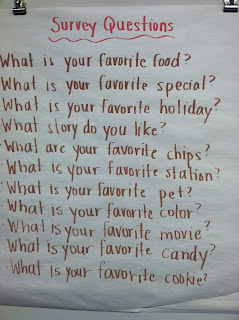 Survey Questions
What is your favorite food?
What is your favorite special?
What is your favorite holiday?
· What story do you like?
· What are your favorite chips?
· What is your favorite station?
· What is your favorite pet?
· What is your favorite color?
· What is your favorite movie?
· What is your favorite candy?
· What is your favorite cookie?